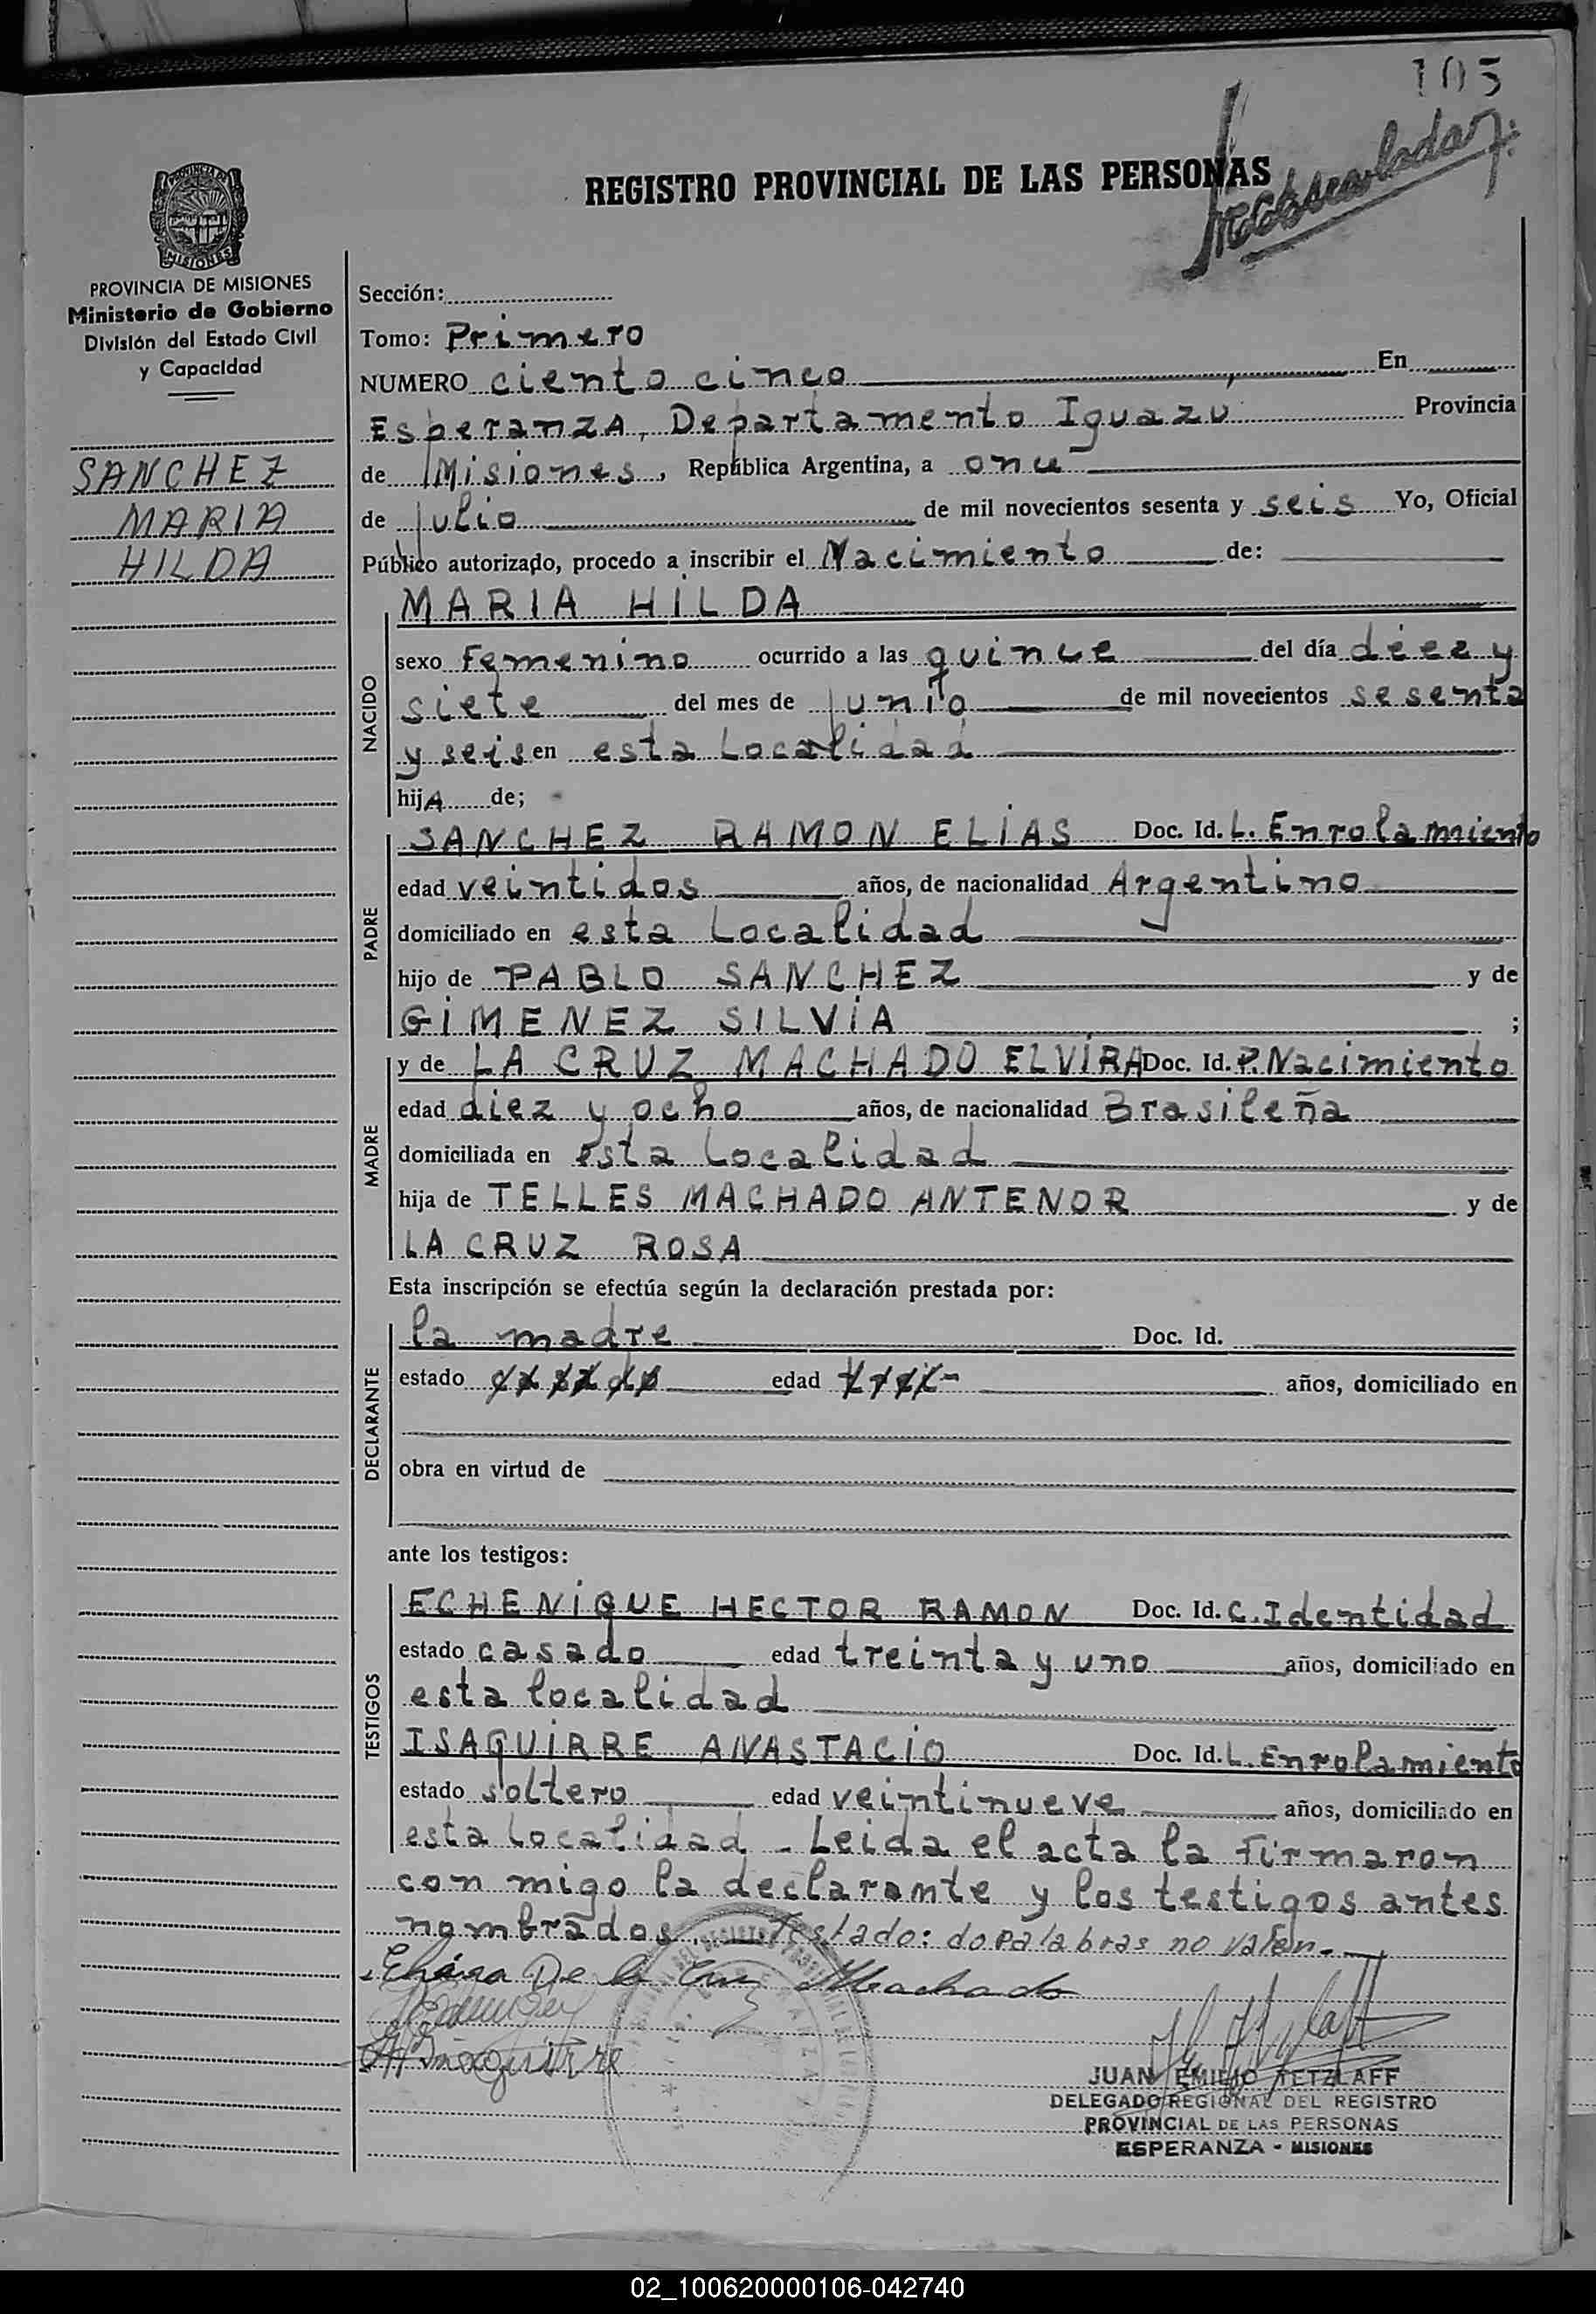 105
REGISTRO PROVINCIAL DE LAS PERSONAS
PROVINCIA DE MISIONES
Ministerio de Gobierno
División del Estado Civil
y Capacidad
SANCHEZ
MARIA
HILDA
Sección:
Tomo: Primero
NUMERO ciento cinco En
Esperanza, Departamento Iguazu Provincia
de Misiones, República Argentina, a once
de Julio de mil novecientos sesenta y seis Yo, Oficial
Público autorizado, procedo a inscribir el Nacimiento de:
NACIDO
MARIA HILDA
sexo Femenino ocurrido a las quince del día diez y
siete del mes de Junio de mil novecientos sesenta
y seis en esta Localidad
hijA de;
PADRE
SANCHEZ RAMON ELIAS Doc. Id. L. Enrolamiento
edad veintidos años, de nacionalidad Argentino
domiciliado en esta Localidad
hijo de PABLO SANCHEZ y de
GIMENEZ SILVIA ;
MADRE
y de LA CRUZ MACHADO ELVIRA Doc. Id. P. Nacimiento
edad diez y ocho años, de nacionalidad Brasileña
domiciliada en esta Localidad
hija de TELLES MACHADO ANTENOR y de
LA CRUZ ROSA
Esta inscripción se efectúa según la declaración prestada por:
DECLARANTE
la madre Doc. Id.
estado edad años, domiciliado en
obra en virtud de
ante los testigos:
TESTIGOS
ECHENIQUE HECTOR RAMON Doc. Id. C. Identidad
estado casado edad treinta y uno años, domiciliado en
esta localidad
ISAQUIRRE ANASTACIO Doc. Id. L. Enrolamiento
estado soltero edad veintinueve años, domiciliado en
esta Localidad - Leida el acta la firmaron
con migo la declarante y los testigos antes
nombrados. Testado: do palabras no valen.-
De la Cruz Machado
JUAN EMILIO TETZLAFF
DELEGADO REGIONAL DEL REGISTRO
PROVINCIAL DE LAS PERSONAS
ESPERANZA - MISIONES
02_100620000106-042740